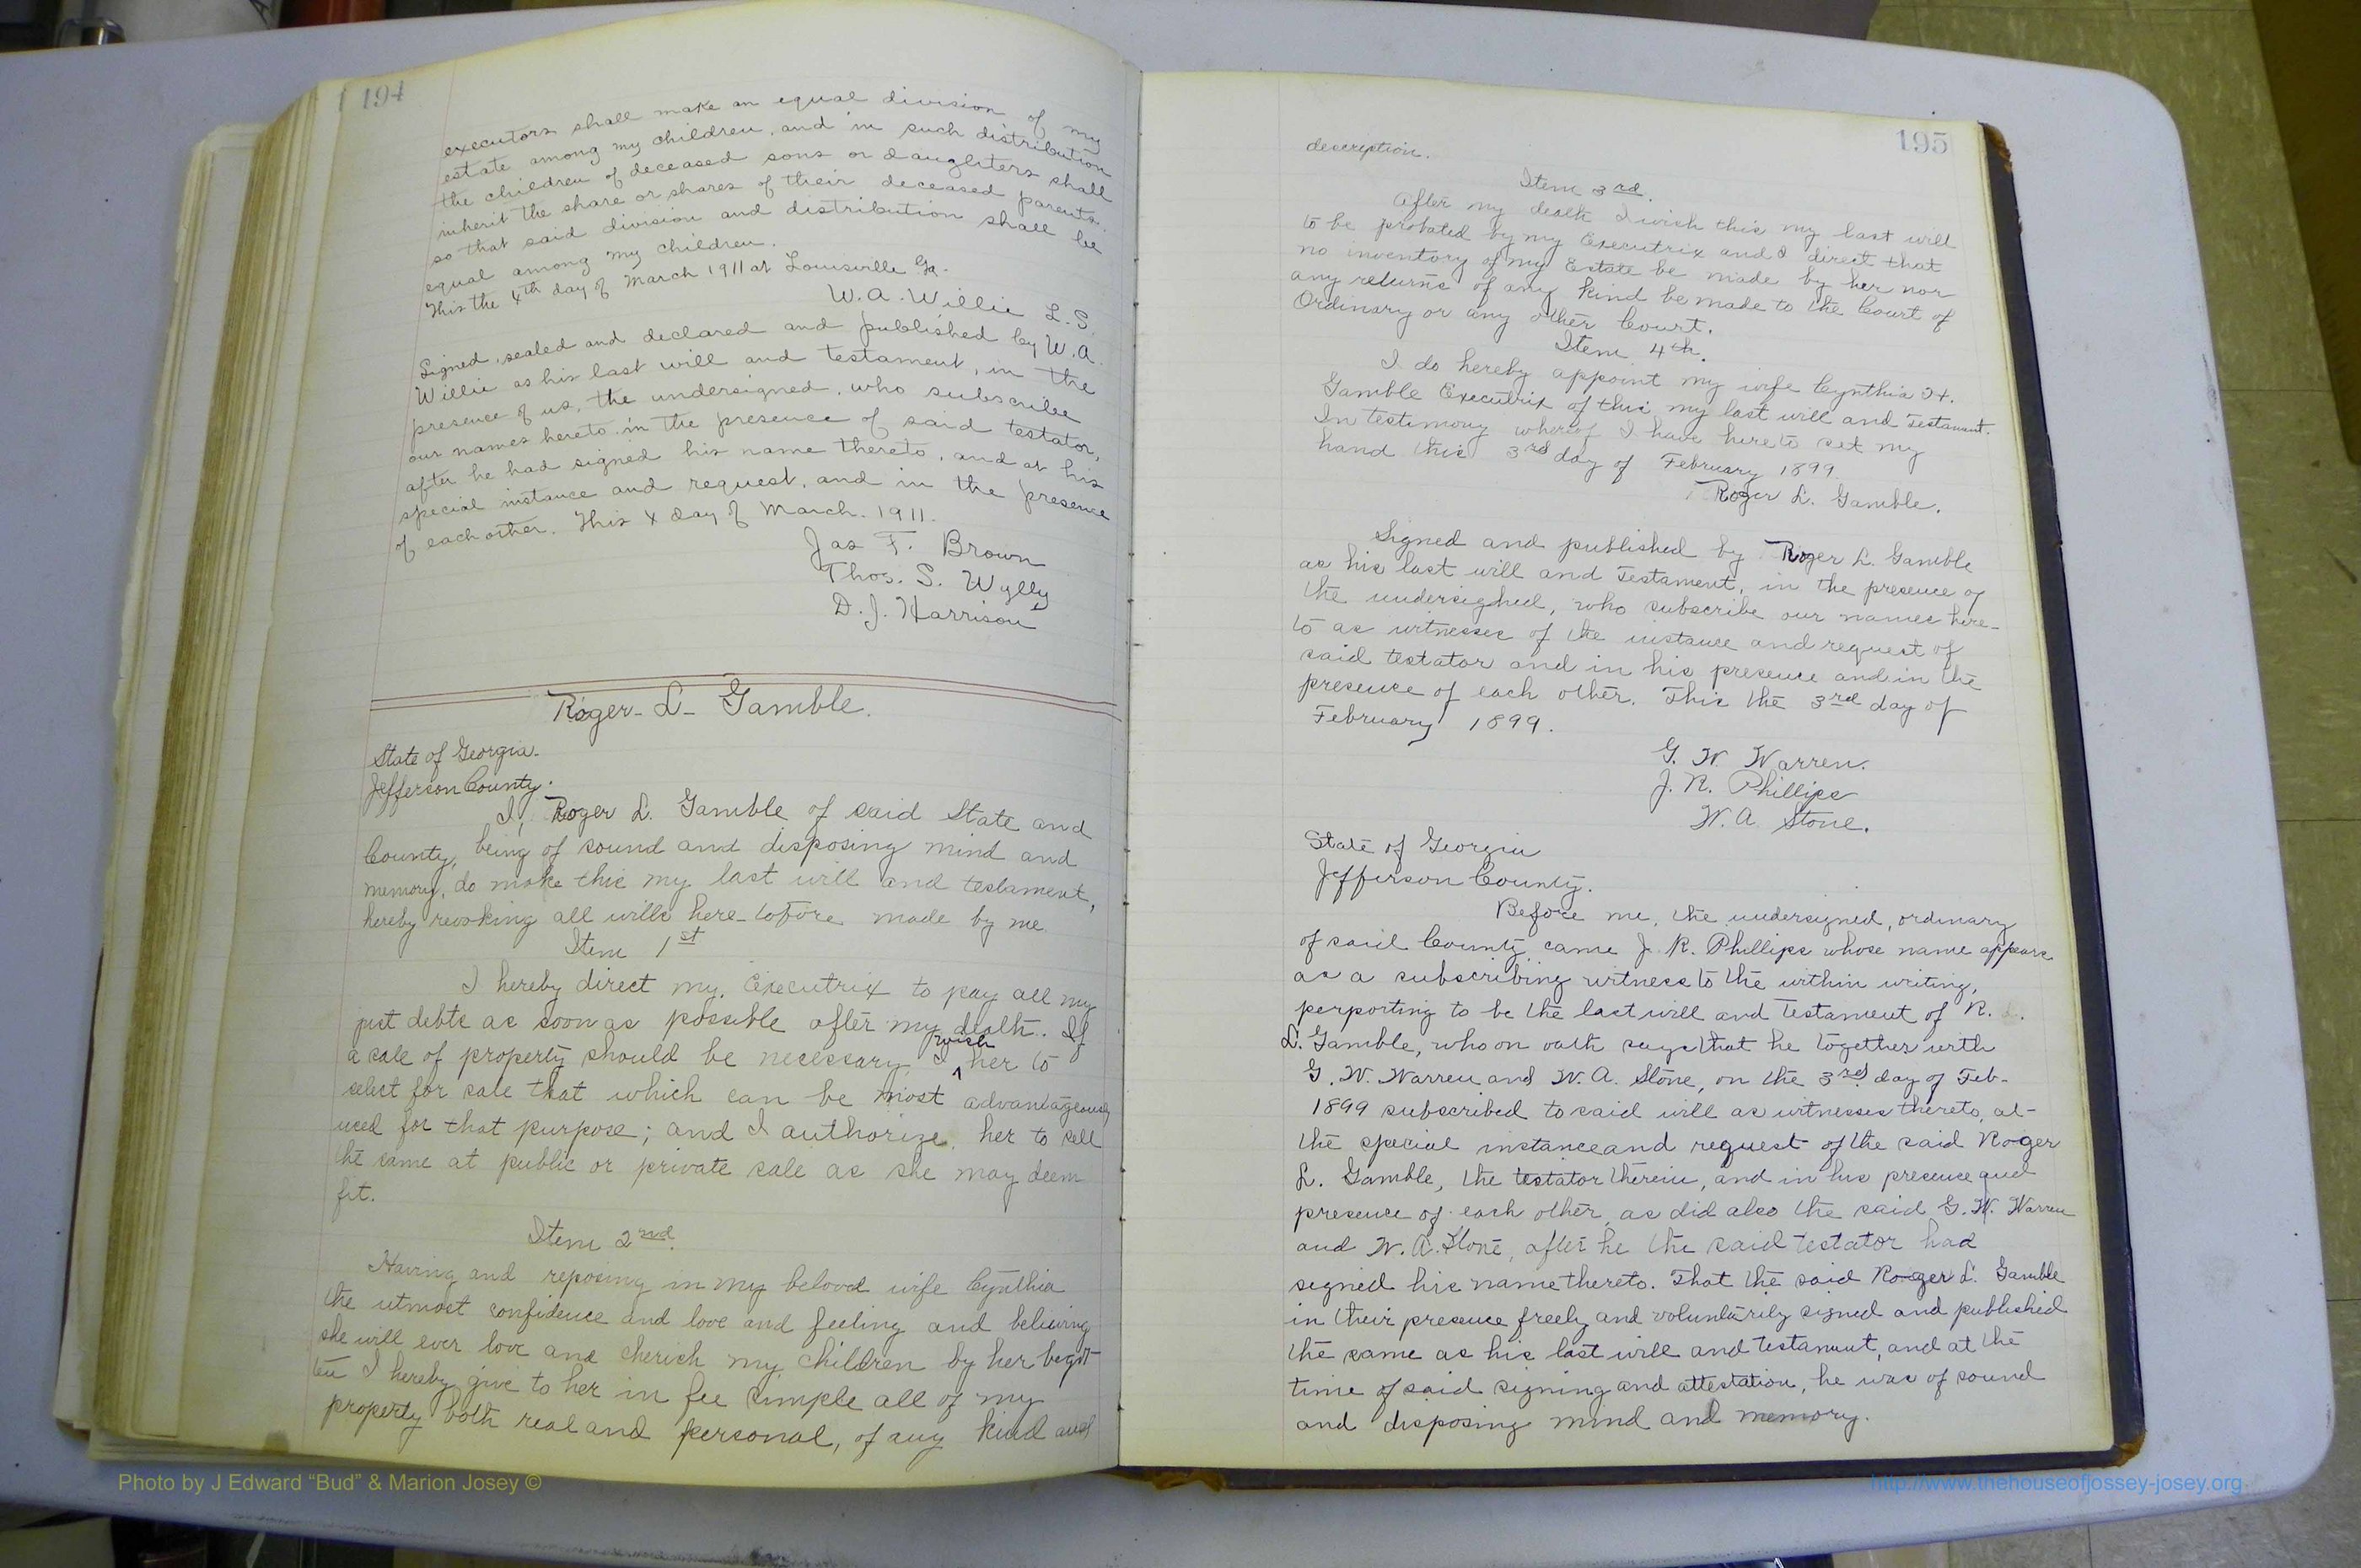 194
executors shall make an equal division of my
estate among my children, and in such distribution
the children of deceased sons or daughters shall
inherit the share or shares of their deceased parents.
so that said division and distribution shall be
equal among my children.
This the 4th day of March 1911 at Louisville Ga.
W. A. Willie L. S.
Signed, sealed and declared and published by W. A.
Willie as his last will and testament, in the
presence of us, the undersigned, who subscribe
our names hereto in the presence of said testator,
after he had signed his name thereto, and at his
special instance and request, and in the presence
of each other. This 4 day of March. 1911.
Jas F. Brown
Thos. S. Wylly
D. J. Harrison
Roger - L - Gamble.
State of Georgia.
Jefferson County.
I, Roger L. Gamble of said State and
County, being of sound and disposing mind and
memory, do make this my last will and testament,
hereby revoking all wills here-tofore made by me
Item 1st
I hereby direct my, Executrix to pay all my
just debts as soon as possible after my death. If
a sale of property should be necessary I wish her to
select for sale that which can be most advantageously
used for that purpose; and I authorize, her to sell
the same at public or private sale as she may deem
fit.
Item 2nd.
Having and reposing in my beloved wife Cynthia
the utmost confidence and love and feeling and believing
she will ever love and cherish my children by her begot-
ten I hereby give to her in fee simple all of my
property both real and personal, of any kind and
195
description.
Item 3rd.
After my death I wish this my last will
to be probated by my Executrix and I direct that
no inventory of my Estate be made by her nor
any returns of any kind be made to the Court of
Ordinary or any other Court.
Item 4th.
I do hereby appoint my wife Cynthia H.
Gamble Executrix of this my last will and Testament.
In testimony whereof I have hereto set my
hand this 3rd day of February 1899.
Roger L. Gamble.
Signed and published by Roger L. Gamble
as his last will and Testament, in the presence of
the undersigned, who subscribe our names here-
to as witnesses of the instance and request of
said testator and in his presence and in the
presence of each other. This the 3rd day of
February 1899.
G. W. Warren.
J. R. Phillips
W. A. Stone.
State of Georgia
Jefferson County.
Before me, the undersigned, ordinary
of said County came J. R. Phillips whose name appears
as a subscribing witness to the within writing,
perporting to be the last will and Testament of R.
L. Gamble, who on oath says that he together with
G. W. Warren and W. A. Stone, on the 3rd day of Feb-
1899 subscribed to said will as witnesses thereto, at-
the special instance and request of the said Roger
L. Gamble, the testator therein, and in his presence and
presence of each other, as did also the said G. W. Warren
and W. A. Stone, after he the said testator had
signed his name thereto. That the said Roger L. Gamble
in their presence freely and voluntarily signed and published
the same as his last will and testament, and at the
time of said signing and attestation, he was of sound
and disposing mind and memory.
Photo by J Edward “Bud” & Marion Josey ©
http://www.thehouseofjossey-josey.org